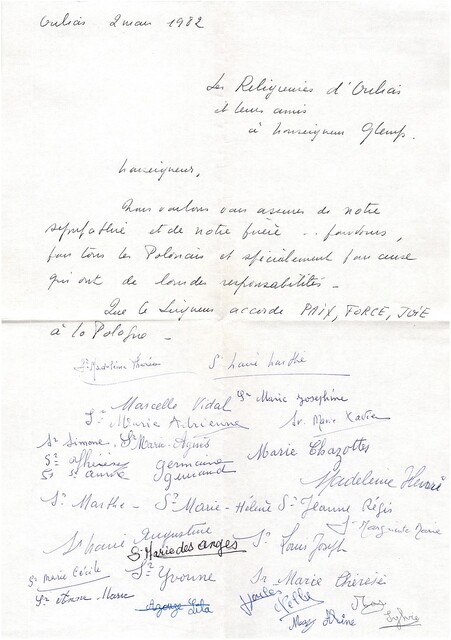 Orliás 2 mars 1982
Les Religieuses d'Orliás
et leurs amis
à Monseigneur Glemp.
Monseigneur,
Nous voulons vous assurer de notre
sympathie et de notre prière - pour vous,
pour tous les Polonais et spécialement pour ceux
qui ont de lourdes responsabilités -
Que le Seigneur accorde PAIX, FORCE, JOIE
à la Pologne -
Sr Madeleine Thérèse Sr Marie Marthe
Marcelle Vidal Sr Marie Josephine
Sr Marie Adrienne Sr. Marie Xavier
Sr Simone. Sr Marie-Agnès Marie Chazottes
Germaine
Madeleine
Sr Marthe - Sr Marie-Hélène Sr Jeanne Régis
Sr Marguerite Marie
Sr Marie Augustine
Sr Marie des anges Sr Louis Joseph
Sr Marie Cécile Sr Yvonne Sr Marie Thérèse
Sr Anne-Marie Lila
Sylvie